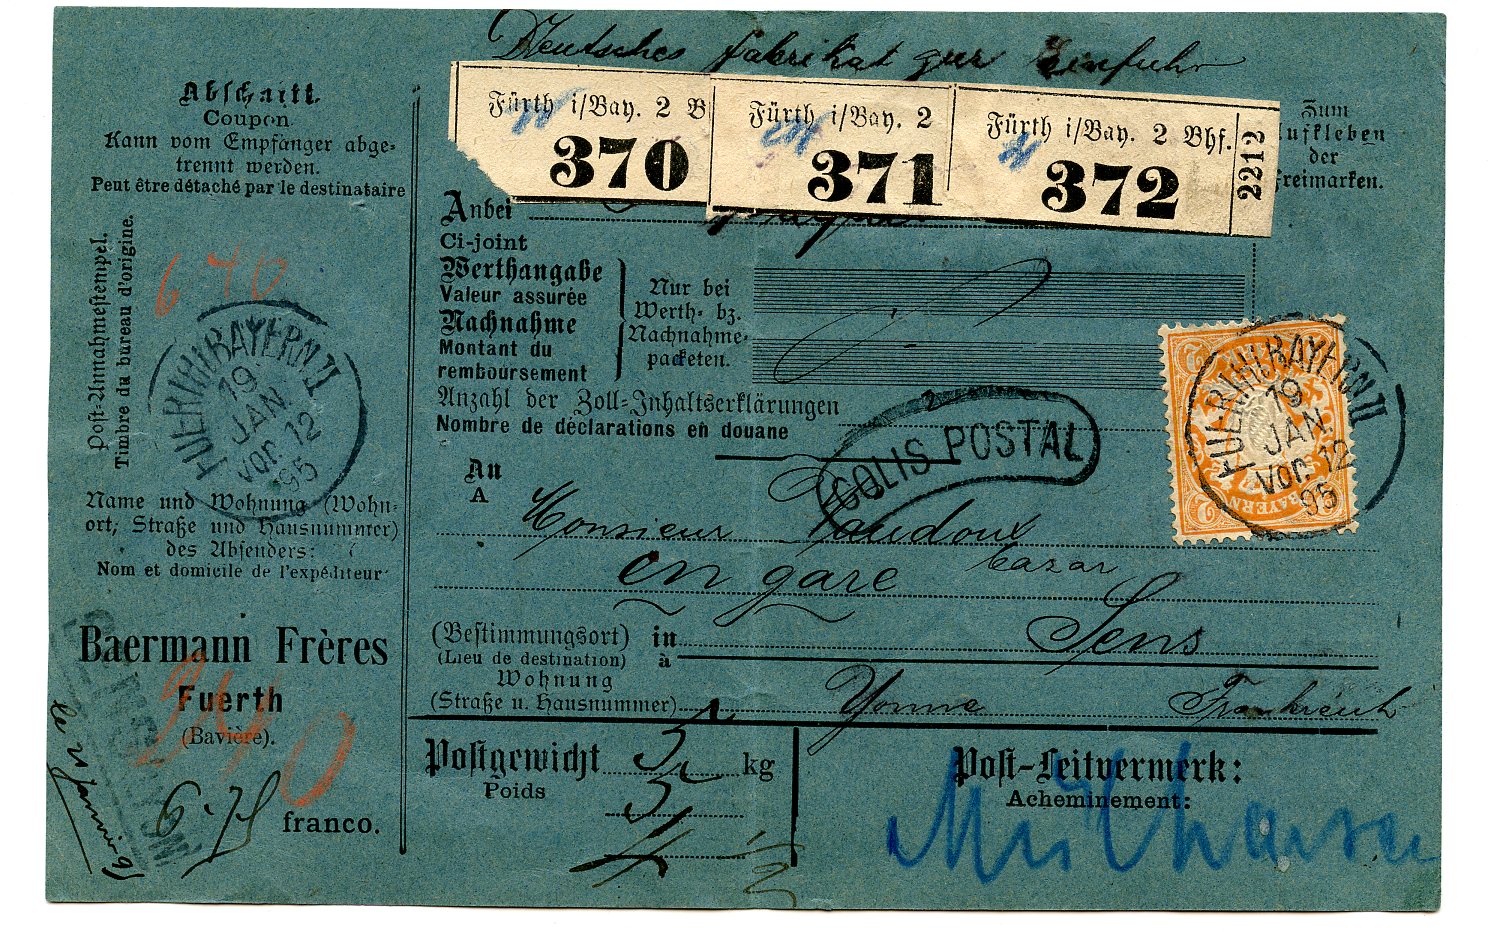 Deutsches Fabrikat zur Einfuhr
Abschnitt.
Coupon
Kann vom Empfänger abge-
trennt werden.
Peut être détaché par le destinataire
Post-Annahmestempel.
Timbre du bureau d'origine.
6 40
FUERTH (BAYERN) II
19
JAN
vor. 12
95
Name und Wohnung (Wohn-
ort, Straße und Hausnummer)
des Absenders:
Nom et domicile de l'expéditeur
Baermann Frères
Fuerth
(Bavière).
6.75
franco.
Fürth i/Bay. 2 B
370
Fürth i/Bay. 2
371
Fürth i/Bay. 2 Bhf.
372
2212
Zum
Aufkleben
der
Freimarken.
Anbei
Ci-joint
Werthangabe
Valeur assurée
Nachnahme
Montant du
remboursement
Nur bei
Werth- bz.
Nachnahme-
packeten.
Anzahl der Zoll-Inhaltserklärungen
Nombre de déclarations en douane
2
COLIS POSTAL
FUERTH (BAYERN) II
19
JAN
vor. 12
95
BAYERN
An
A
Monsieur
bazar
en gare
(Bestimmungsort) in
(Lieu de destination) à
Sens
Wohnung
(Straße u. Hausnummer)
Yonne Frankreich
Postgewicht 3 kg
Poids
3
4
Post-Leitvermerk:
Acheminement:
Mülhausen